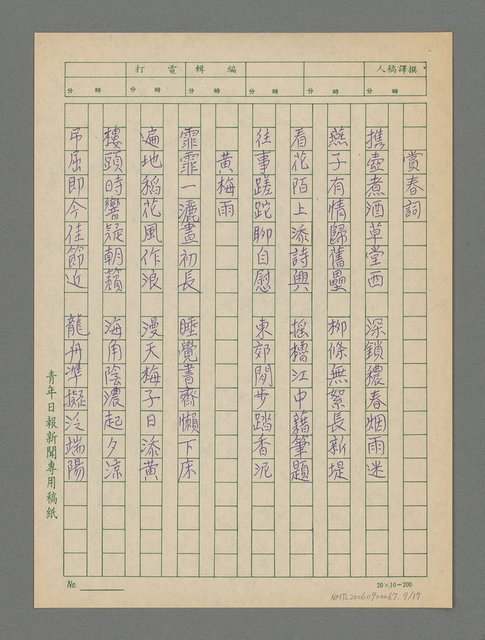 撰譯稿人
編輯
電打
時分 時分 時分 時分 時分
賞春詞
携壺煮酒草堂西 深鎖穠春烟雨迷
燕子有情歸舊壘 柳條無絮長新堤
看花陌上添詩興 搖櫓江中藉筆題
往事蹉跎聊自慰 東郊閒步踏香泥
黃梅雨
霏霏一灑晝初長 睡覺書齋懶下床
遍地稻花風作浪 漫天梅子日添黃
樓頭時響疑朝籟 海角陰濃起夕涼
弔屈即今佳節近 龍舟準擬泛端陽
青年日報新聞專用稿紙
No.
20×10=200
NMTL20060900067. 9/17